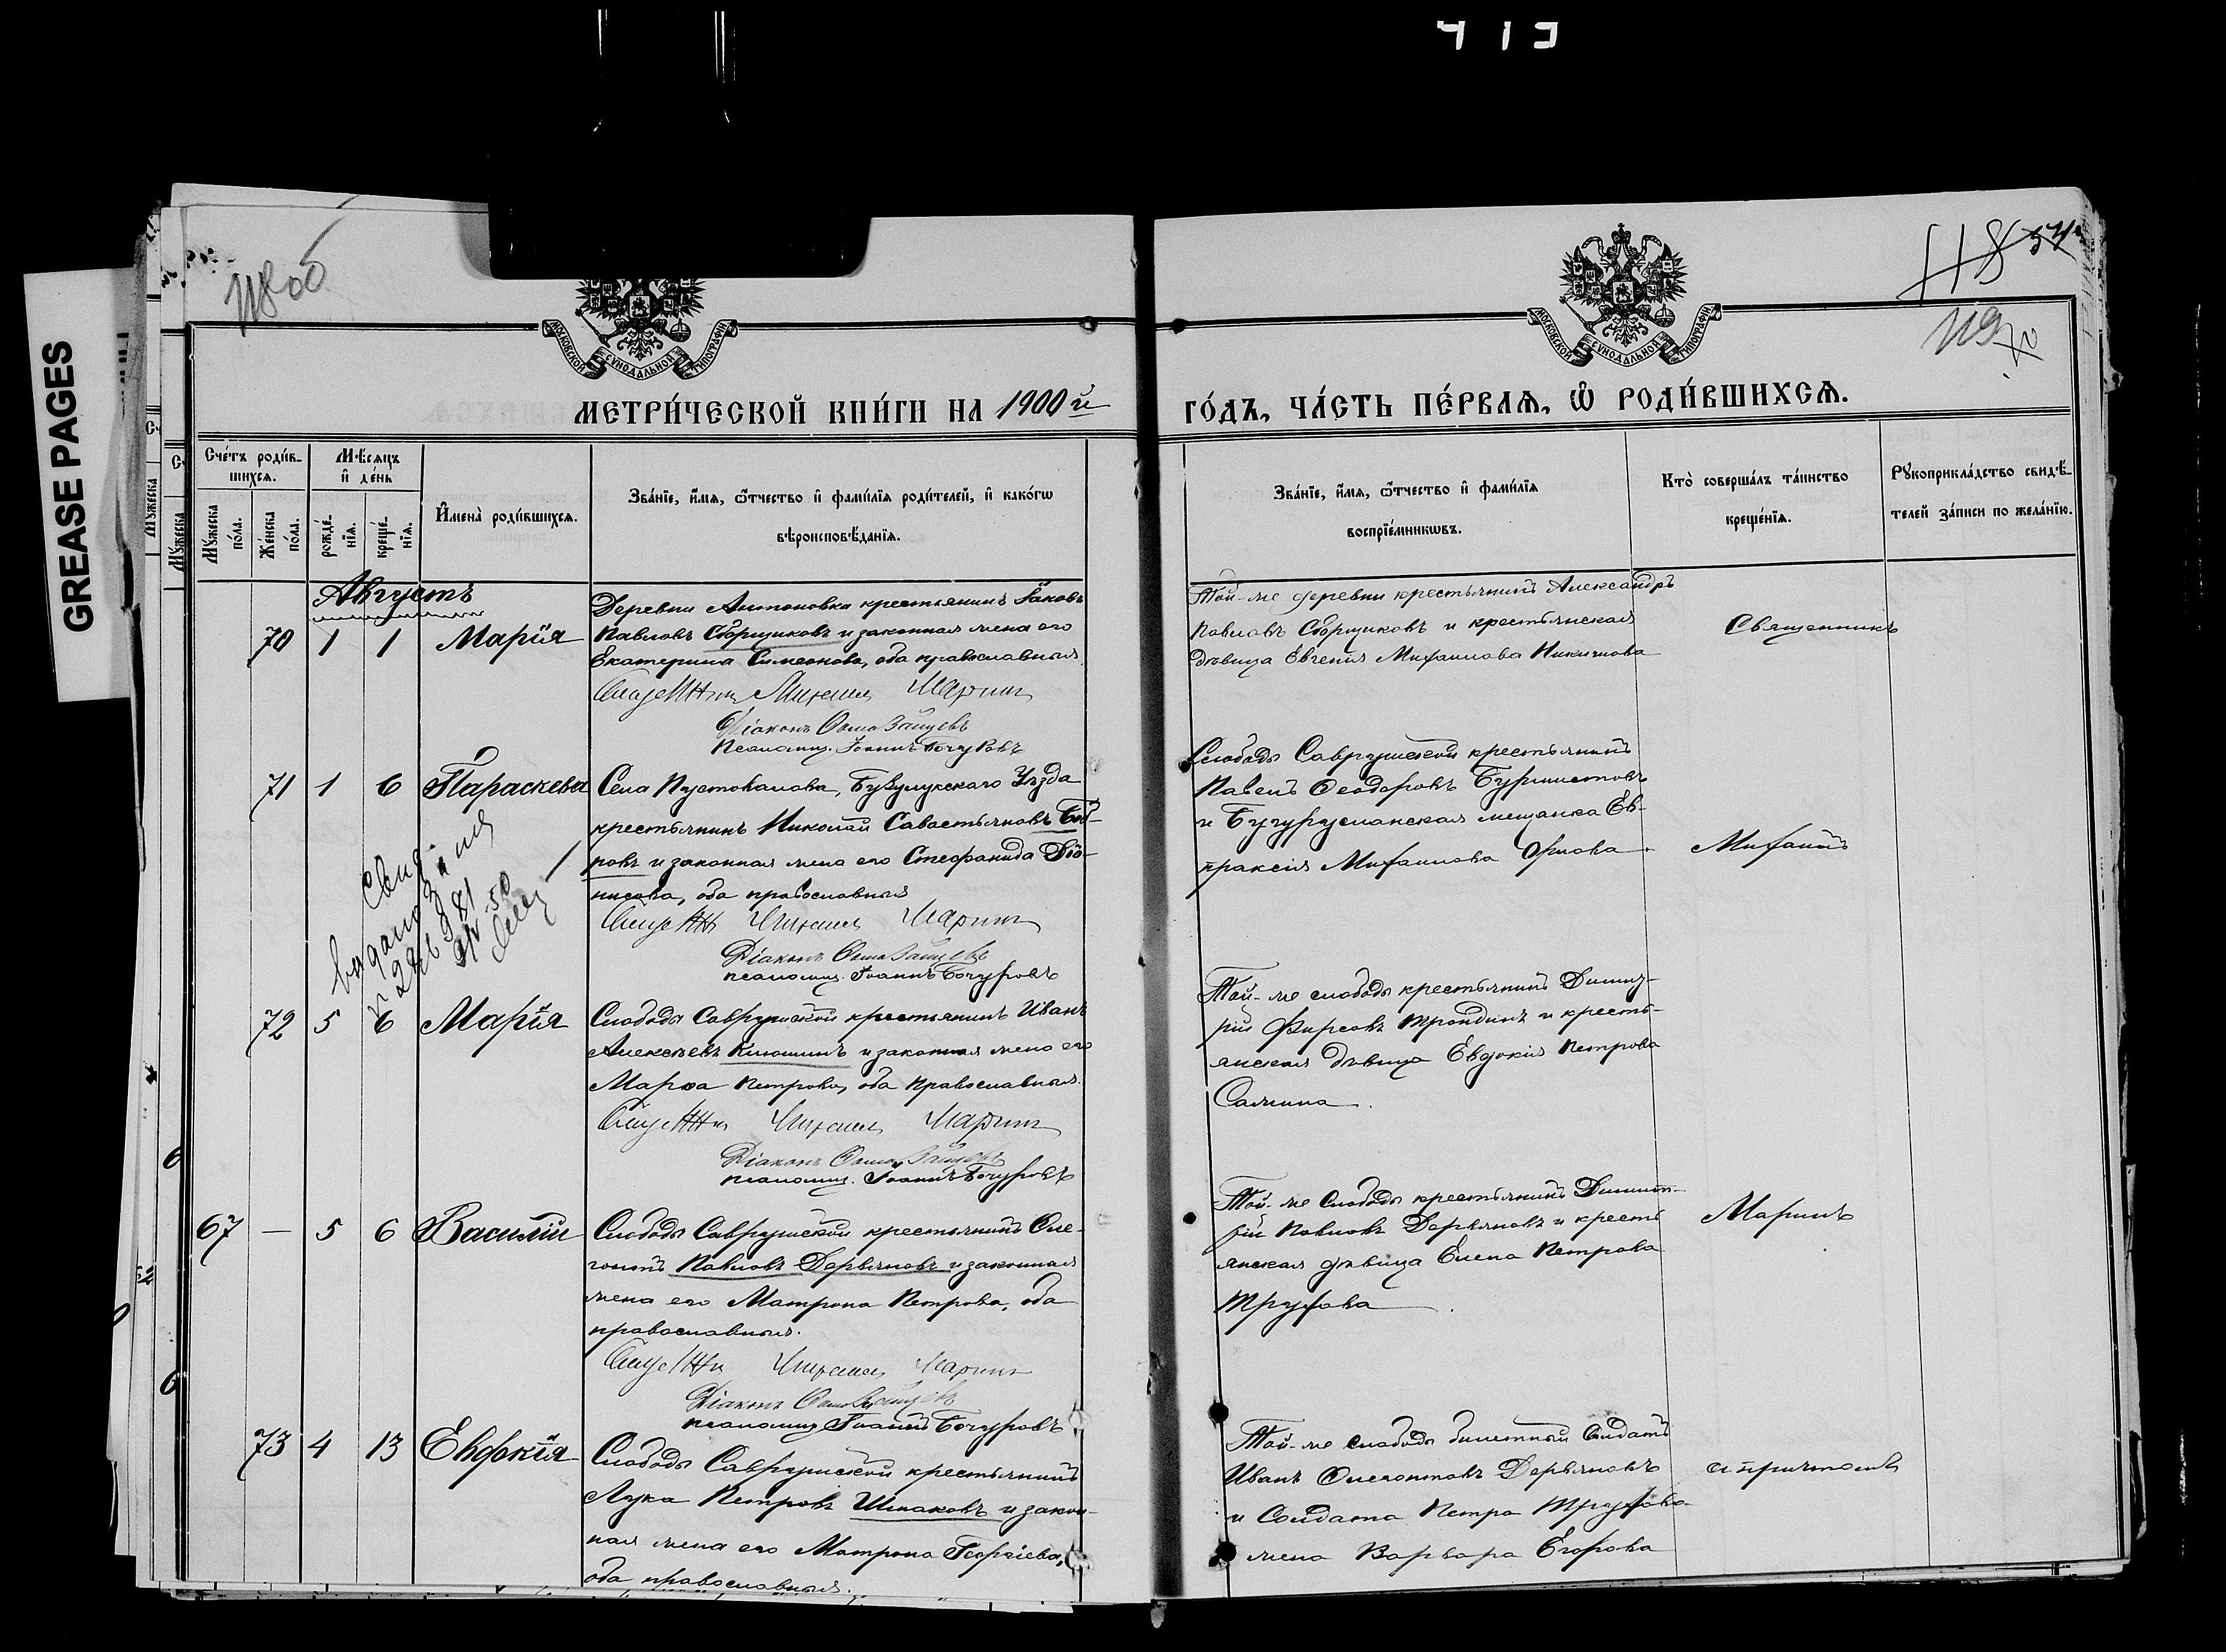 413
GREASE PAGES
118 об
118
54
119
МОСКОВСКОЙ СѴНОДАЛЬНОЙ ТИПОГРАФІИ
МОСКОВСКОЙ СѴНОДАЛЬНОЙ ТИПОГРАФІИ
МЕТРИ́ЧЕСКОЙ КНИ́ГИ НА 1900й
ГО́ДЪ, ЧА́СТЬ ПЕ́РВАѦ, Ѽ РОДИ́ВШИХСѦ.
Сче́тъ роди́в-
шихсѧ.
Мꙋжеска по́ла.
Же́нска по́ла.
Мѣ́сѧцъ
и҆ де́нь
рожде́-
нїѧ.
креще́-
нїѧ.
И҆мена̀ роди́вшихсѧ.
Зва́нїе, и҆́мѧ, ѻ҆́тчество и҆ фами́лїѧ роди́телей, и҆ како́гѡ
вѣроисповѣ́данїѧ.
Зва́нїе, и҆́мѧ, ѻ҆́тчество и҆ фами́лїѧ
воспрїе́мникѡвъ.
Кто̀ соверша́лъ та́инство
креще́нїѧ.
Рꙋкоприкла́дство свидѣ́-
телей за́писи по жела́нїю.
Августъ
70 1 1 Марія
Деревни Антоновки крестьянинъ Іаковъ
Павловъ Сборщиковъ и законная жена его
Екатерина Симеонова, оба православные
Священникъ Михаилъ Маринъ
Діаконъ Ѳома Зайцевъ
Псаломщ. Іоаннъ Бочуровъ
Той-же деревни крестьянинъ Александръ
Павловъ Сборщиковъ и крестьянская
дѣвица Евгенія Михаилова Никитова
Священникъ
71 1 6 Параскева
Села Пустовалова, Бузулукскаго Уѣзда
крестьянинъ Николай Савостьяновъ Боб-
ровъ и законная жена его Стефанида Діо-
нисова, оба православные
Священ Михаилъ Маринъ
Діаконъ Ѳома Зайцевъ
псаломщ. Іоаннъ Бочуровъ
Слободы Саврушской крестьянинъ
Павелъ Ѳеодоровъ Бурмистовъ
и Бугурусланская мещанка Ев-
праксія Михаилова
Михаилъ
72 5 6 Марія
Слободы Саврушской крестьянинъ Иванъ
Алексѣевъ Клюшинъ и законная жена его
Марѳа Петрова, оба православные.
Священ Михаилъ Маринъ
Діаконъ Ѳома Зайцевъ
псаломщ. Іоаннъ Бочуровъ
Той-же слободы крестьянинъ Димит-
рій Фирсовъ Трондинъ и кресть-
янская дѣвица Евдокія Петрова
Салмина.
67 — 5 6 Василій
Слободы Саврушской крестьянинъ Оле-
гонтъ Павловъ Деревяновъ и законная
жена его Матрона Петрова, оба
православные.
Священ Михаилъ Маринъ
Діаконъ Ѳома Зайцевъ
псаломщ Іоаннъ Бочуровъ
Той-же Слободы крестьянинъ Димит-
рій Павловъ Деревяновъ и кресть
янская дѣвица Елена Петрова
Трухова.
Маринъ
73 4 13 Евдокія
Слободы Саврушской крестьянинъ
Лука Петровъ Шпаковъ и закон-
ная жена его Матрона Георгіева,
оба православные.
Той-же слободы билетный солдатъ
Иванъ Олегонтовъ Деревяновъ
и Солдата Петра Трухова
жена Варвара Егорова
съ причтомъ